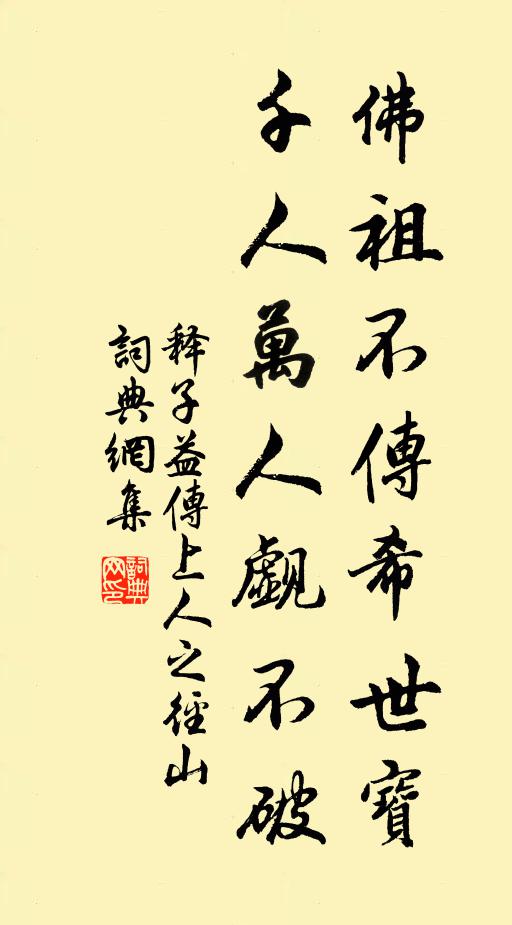 佛祖不傳希世寶
千人萬人覷不破
释子益傳上人之徑山
詞典網集
詞典网印